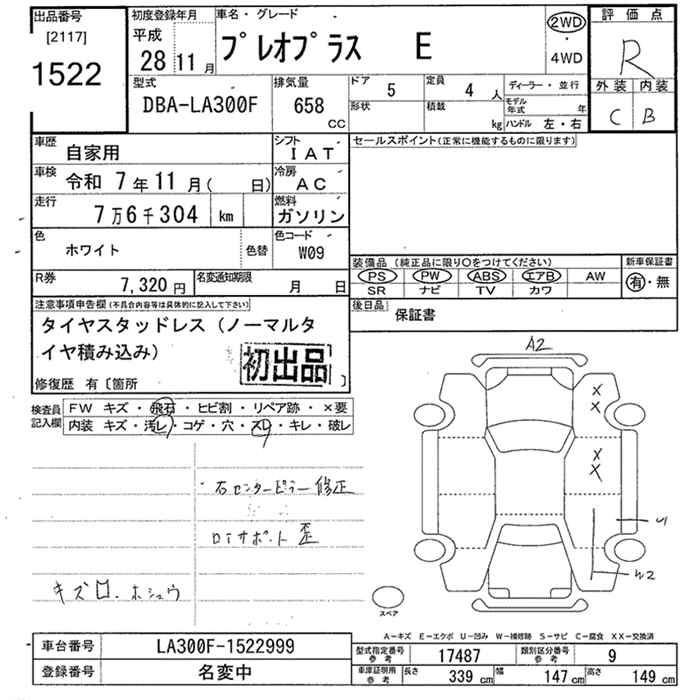 出品番号
[2117]
1522
初度登録年月
平成
28 11 月
車名・グレード
プレオプラス E
2WD
・
4WD
評価点
R
外装 内装
C B
型式
DBA-LA300F
排気量
658
CC
ドア
5
定員
4 人
形状
積載
kg
ディーラー・並行
モデル年式 年
ハンドル 左・右
車歴
自家用
シフト
IAT
セールスポイント(正常に機能するものに限ります)
車検
令和 7 年 11 月( 日)
冷房
AC
走行
7万6千304 km
燃料
ガソリン
色
ホワイト
色替
色コード
W09
装備品(純正品に限り○をつけてください)
PS PW ABS エアB AW
SR ナビ TV カワ
新車保証書
有・無
R券
7,320 円
名変通知期限
月 日
後日品
保証書
注意事項申告欄(不具合内容等は具体的に記入して下さい)
タイヤスタッドレス(ノーマルタ
イヤ積み込み)
初出品
修復歴 有〔箇所 〕
検査員
記入欄
FW キズ・飛石・ヒビ割・リペア跡・×要
内装 キズ・汚レ・コゲ・穴・スレ・キレ・破レ
右センターピラー修正
サポート 歪
キズ
A2
X
X
X
X
U1
W2
スペア
A-キズ E-エクボ U-凹み W-補修跡 S-サビ C-腐食 XX-交換済
車台番号
LA300F-1522999
登録番号
名変中
型式指定番号
参考
17487
類別区分番号
参考
9
車庫証明用
参考
長さ
339 cm
幅
147 cm
高さ
149 cm